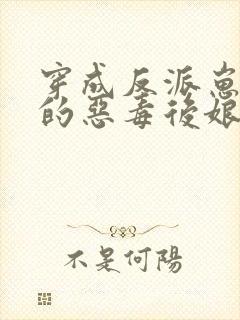 穿成反派崽
的惡毒後娘
不是何陽